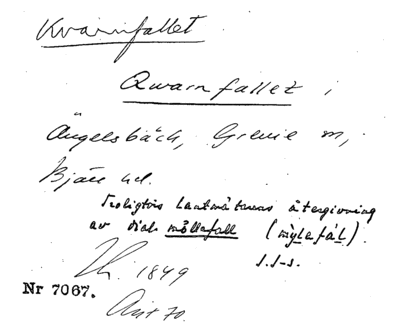 Kvarnfallet
Qwarnfallet i
Ängelsbäck, Grevie sn,
Bjäre hd.
Troligtvis lantmätarens återgivning
av dial. möllafall (mỳLefáL).
S.I-s.
1849
Nr 7067.
Avst 70.